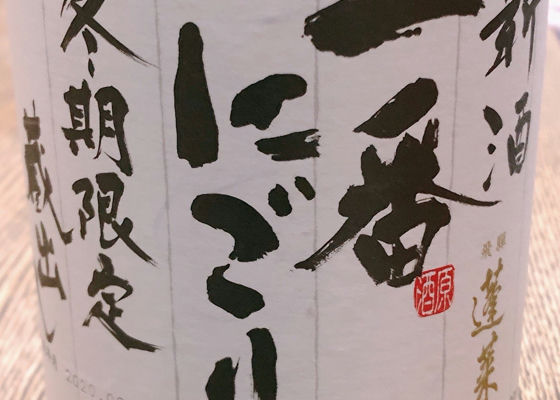 新酒
飛騨
蓬莱
一番
原酒
にごり
冬期限定
蔵出し
2020.0